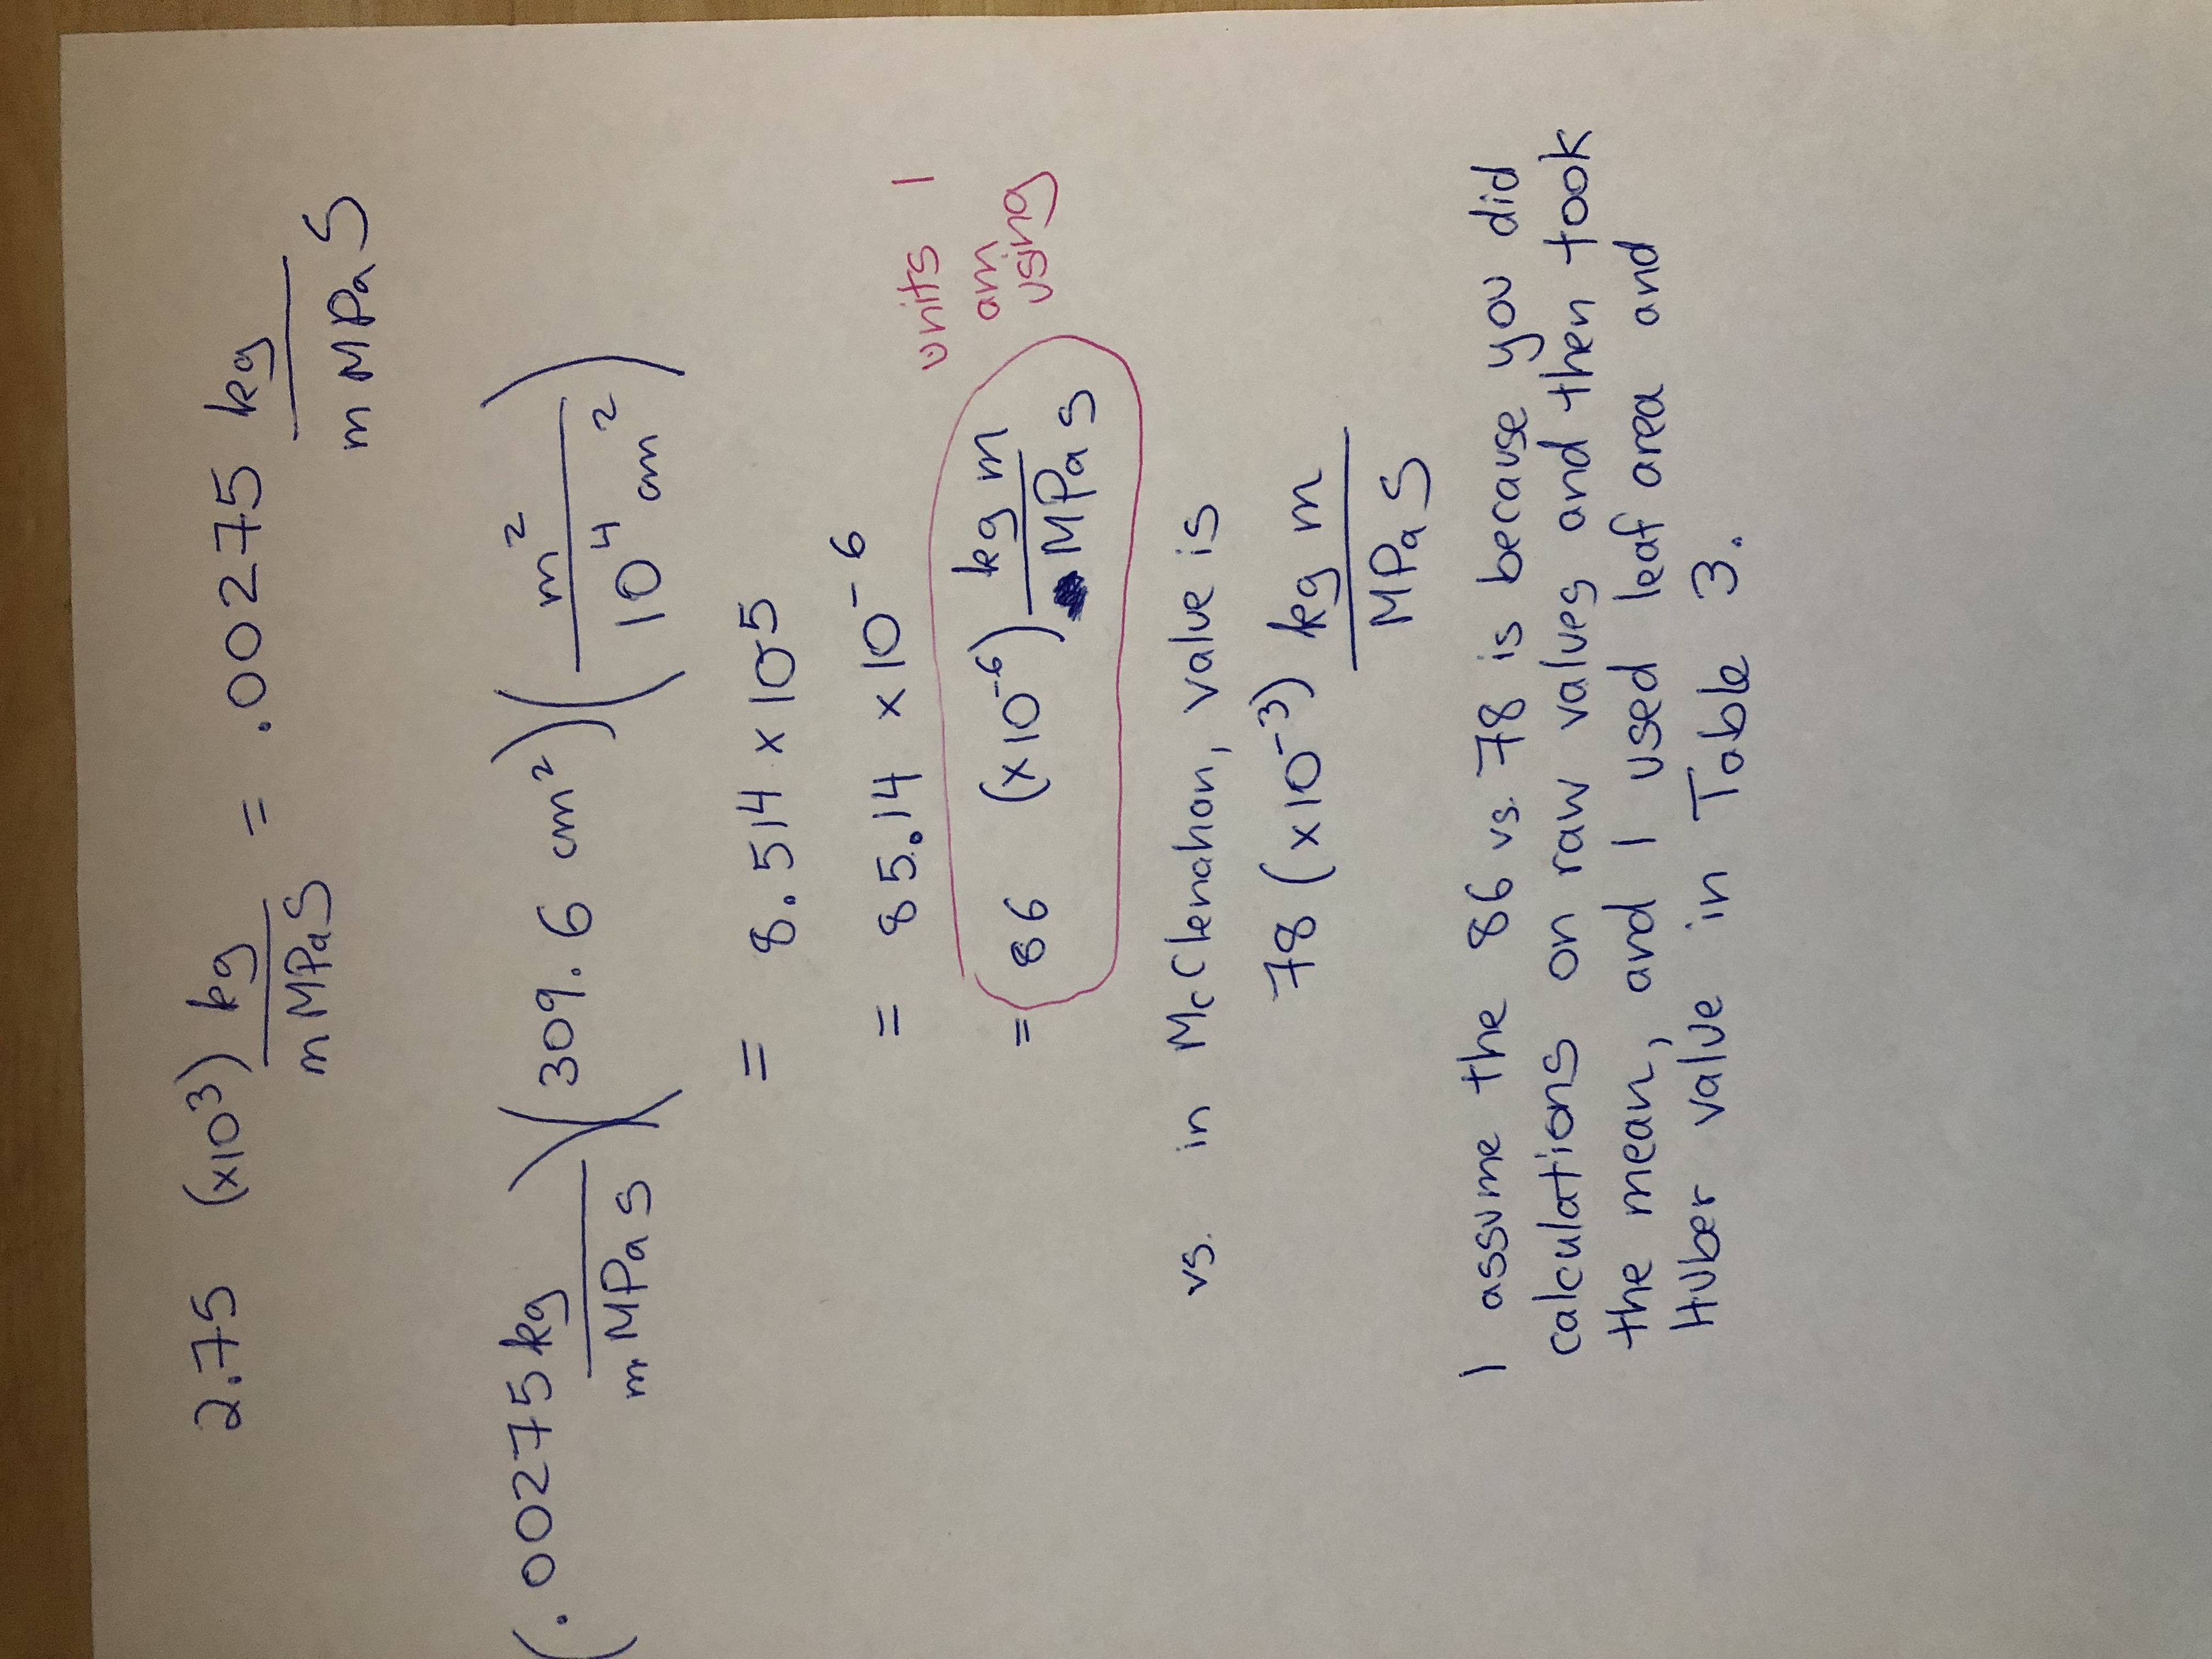 2.75 (x10³) kg / m MPa S = .00275 kg / m MPa S
(.00275 kg / m MPa s)(309.6 cm²)(m² / 10⁴ cm²)
= 8.514 x 10⁻5
= 85.14 x10⁻⁶
= 86 (x10⁻⁶) kg m / MPa s
units I
am
using
vs. in McClenahan, value is
78 (x10⁻³) kg m / MPa S
I assume the 86 vs. 78 is because you did
calculations on raw values and then took
the mean, and I used leaf area and
Huber value in Table 3.